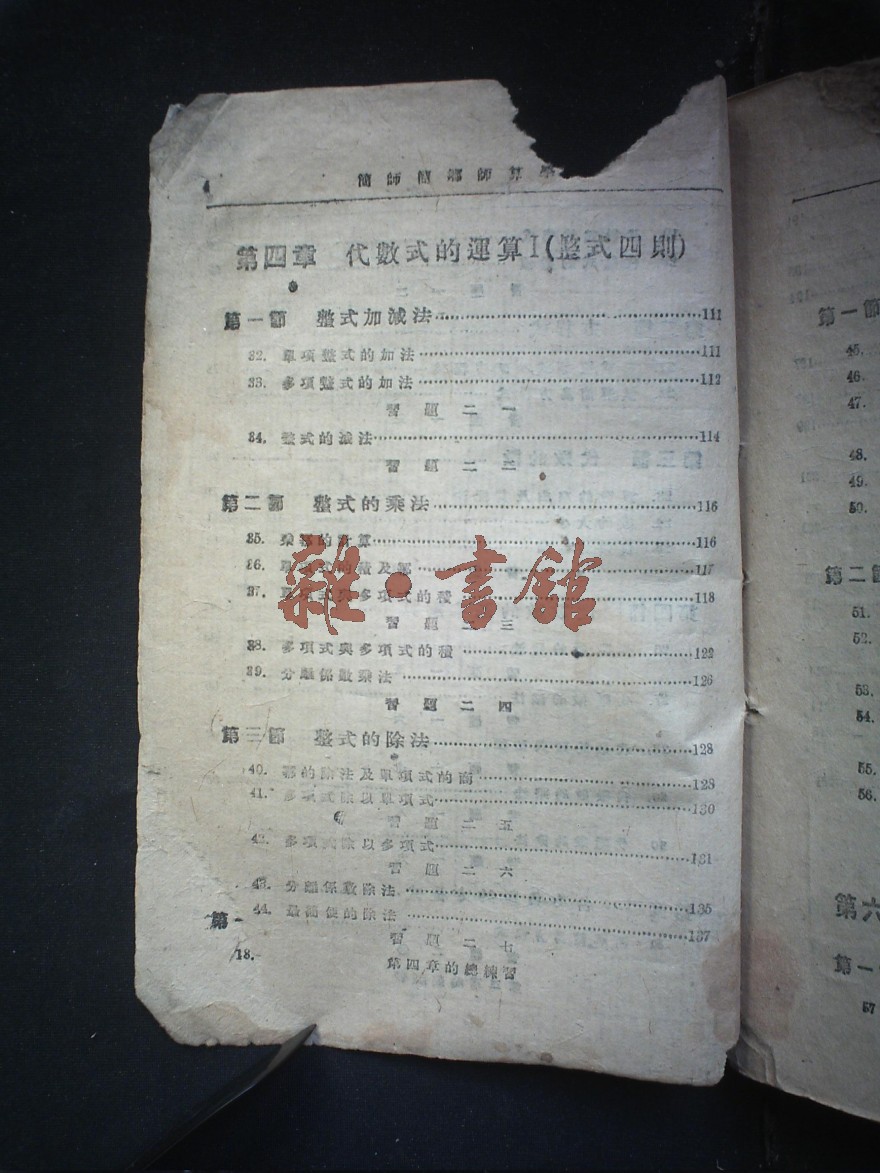 4 簡師簡鄉師算學
第四章 代數式的運算I(整式四則)
第一節 整式加減法 111
32. 單項整式的加法 111
33. 多項整式的加法 112
習題二一
34. 整式的減法 114
習題二二
第二節 整式的乘法 116
35. 乘冪的計算 116
36. 單項式的積及冪 117
37. 單項式與多項式的積 118
習題二三
38. 多項式與多項式的積 122
39. 分離係數乘法 126
習題二四
第三節 整式的除法 128
40. 冪的除法及單項式的商 128
41. 多項式除以單項式 130
習題二五
42. 多項式除以多項式 131
習題二六
43. 分離係數除法 135
44. 最簡便的除法 137
習題二七
第四章的總練習
第一
18.
雜·書館
第一節
45.
46.
47.
48.
49.
50.
第二節
51.
52.
53.
54.
55.
56.
第六
第一
57